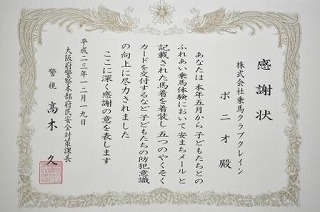 感謝状
株式会社乗馬クラブクレイン
ボニオ 殿
あなたは本年五月から子どもたちとの
ふれあい乗馬体験において安まちメールと
記載された馬着を着装し五つのやくそく
カードを交付するなど子どもたちの防犯意識
の向上に尽力されました
ここに深く感謝の意を表します
平成二三年一二月一九日
大阪府警察本部府民安全対策課長
警視 高木 久